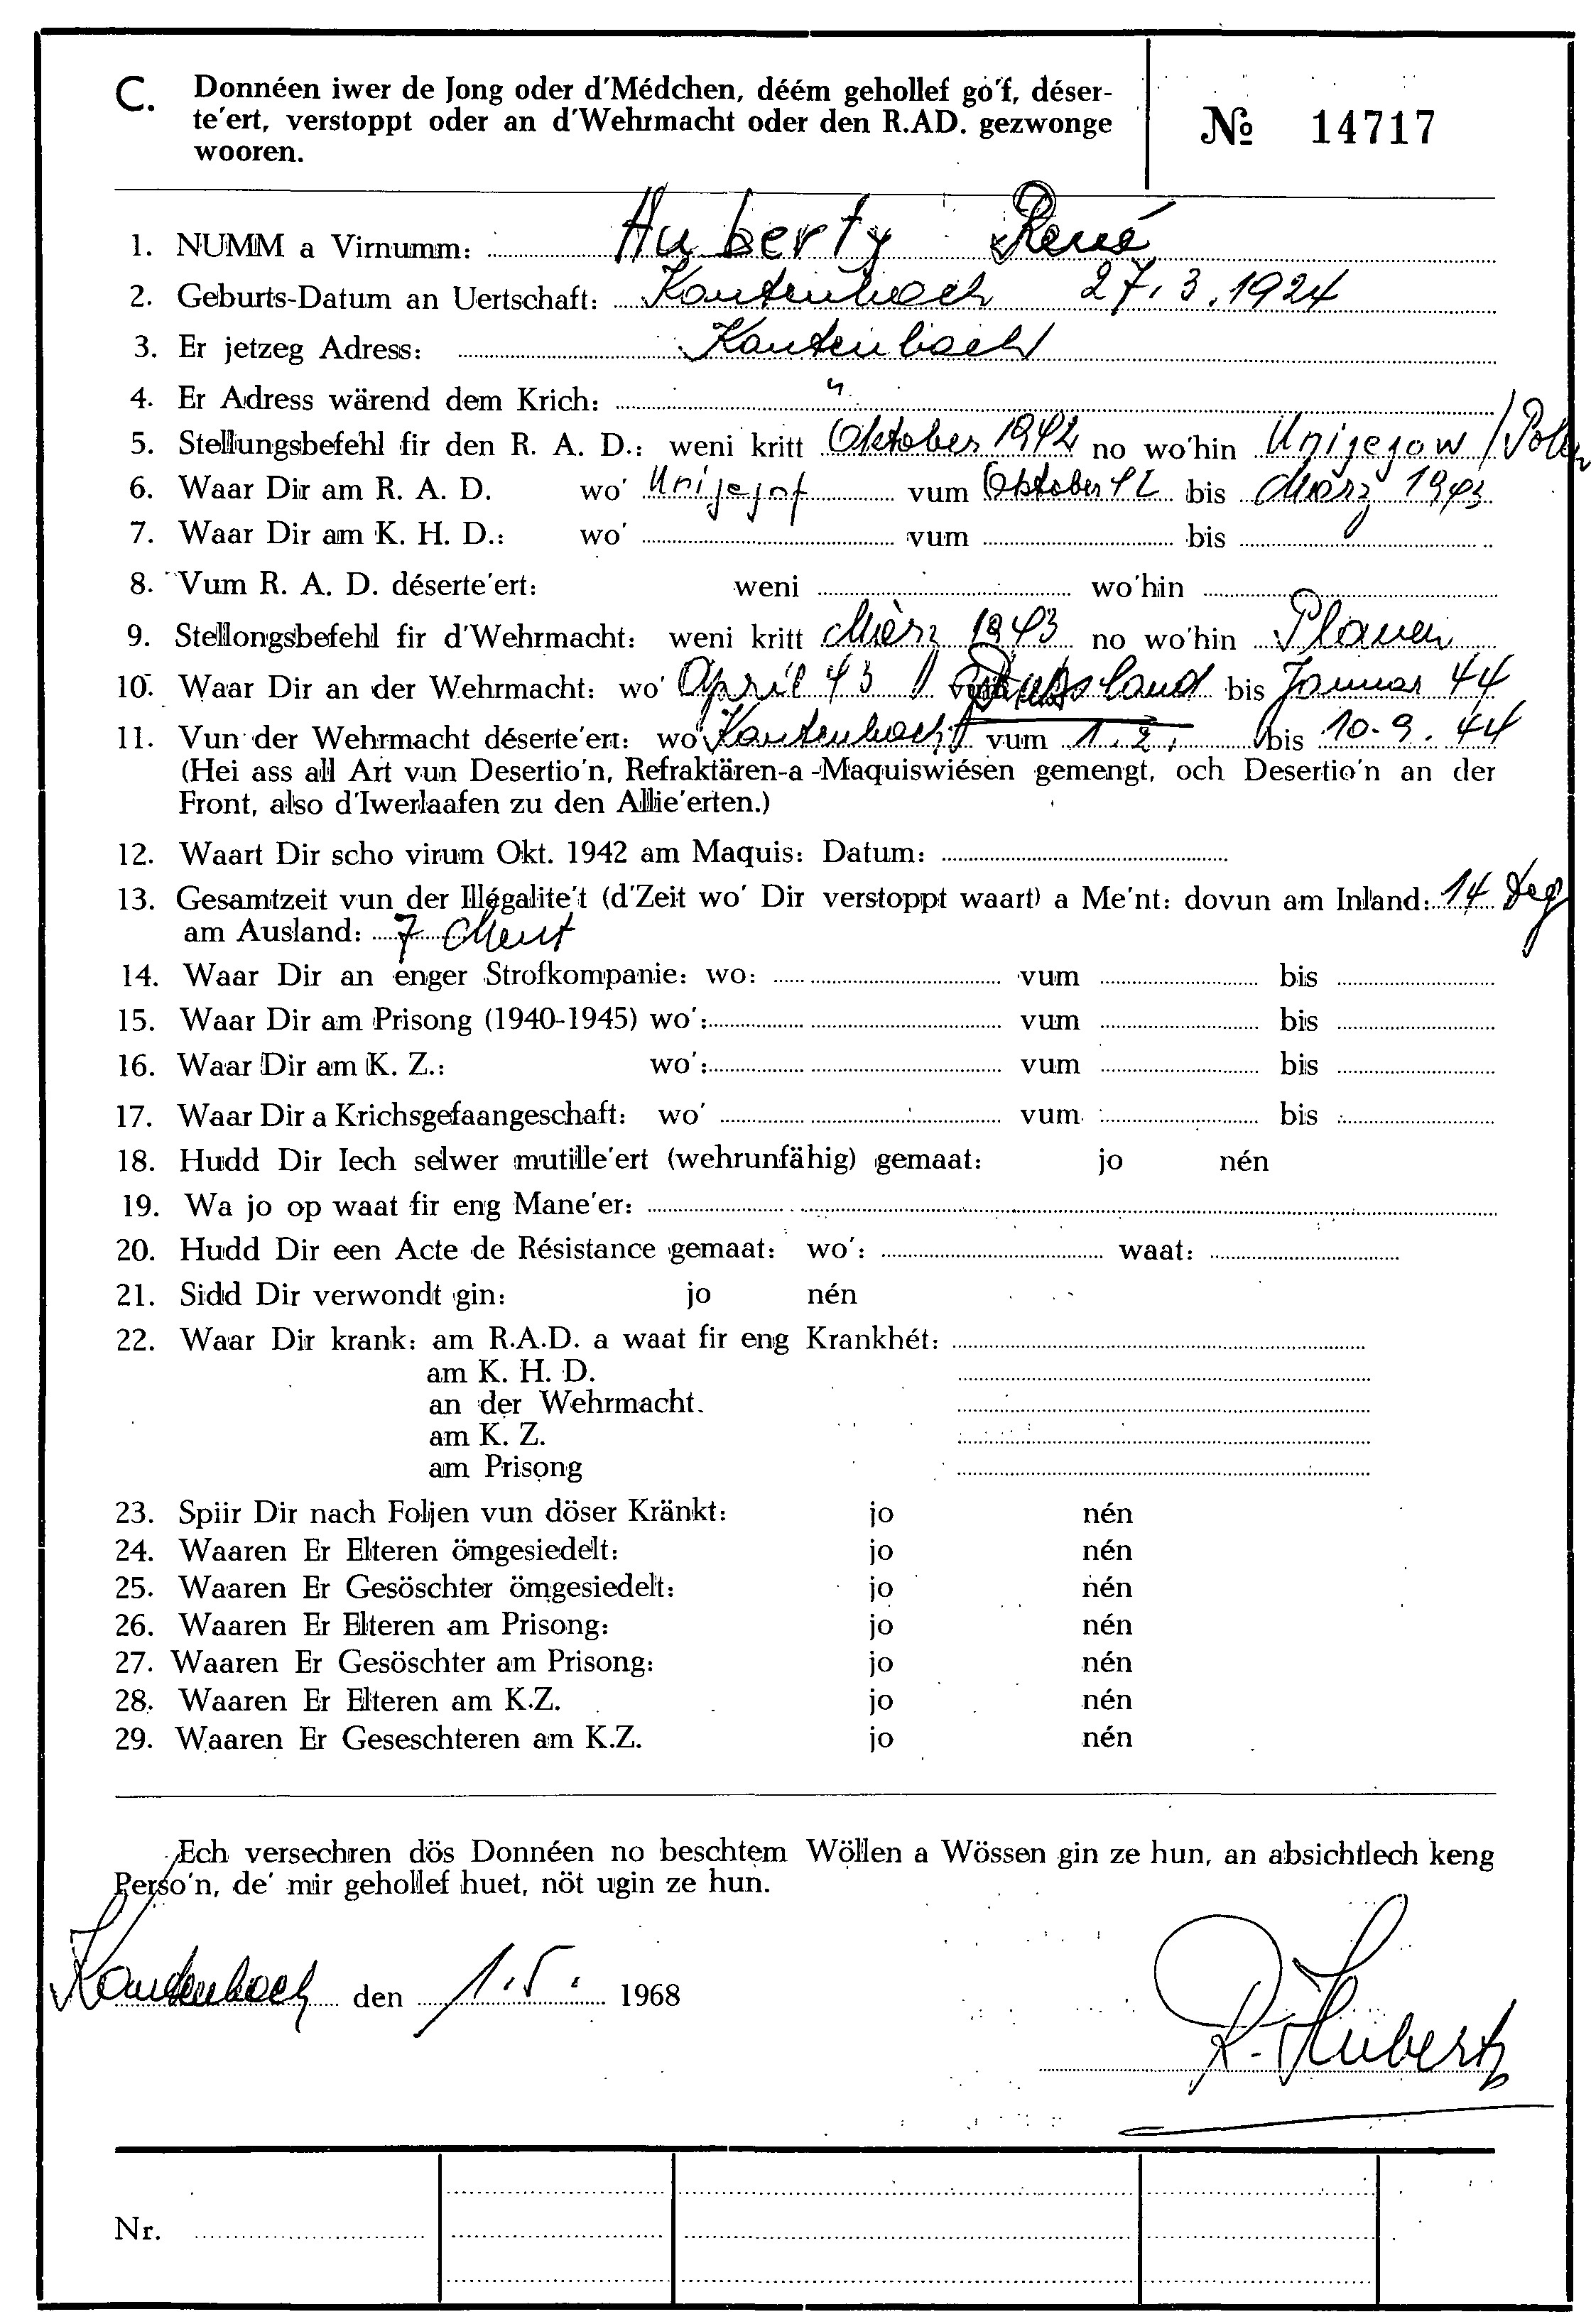 C. Donnéen iwer de Jong oder d'Médchen, déém gehollef go'f, déser-
te'ert, verstoppt oder an d'Wehrmacht oder den R.AD. gezwonge
wooren.
№ 14717
1. NUMM a Virnumm: Huberty René
2. Geburts-Datum an Uertschaft: Kautenbach 27.3.1924
3. Er jetzeg Adress: Kautenbach
4. Er Adress wärend dem Krich: "
5. Stellungsbefehl fir den R. A. D.: weni kritt Oktober 1942 no wo'hin Unijejow / Polen
6. Waar Dir am R. A. D. wo' Unijejof vum Oktober 42 bis März 1943
7. Waar Dir am K. H. D.: wo' vum bis
8. Vum R. A. D. déserte'ert: weni wo'hin
9. Stellongsbefehl fir d'Wehrmacht: weni kritt März 1943 no wo'hin Plauen
10. Waar Dir an der Wehrmacht: wo' April 43 vum Russland bis Januar 44
11. Vun der Wehrmacht déserte'ert: wo' Kautenbach vum 1.2. bis 10.9.44
(Hei ass all Art vun Desertio'n, Refraktären-a-Maquiswiésen gemengt, och Desertio'n an der
Front, also d'Iwerlaafen zu den Allie'erten.)
12. Waart Dir scho virum Okt. 1942 am Maquis: Datum:
13. Gesamtzeit vun der Illégalite't (d'Zeit wo' Dir verstoppt waart) a Me'nt: dovun am Inland: 14 Deg
am Ausland: 7 Ment
14. Waar Dir an enger Strofkompanie: wo: vum bis
15. Waar Dir am Prisong (1940-1945) wo': vum bis
16. Waar Dir am K. Z.: wo': vum bis
17. Waar Dir a Krichsgefaangeschaft: wo' vum bis
18. Hudd Dir Iech selwer mutille'ert (wehrunfähig) gemaat: jo nén
19. Wa jo op waat fir eng Mane'er:
20. Hudd Dir een Acte de Résistance gemaat: wo': waat:
21. Sidd Dir verwondt gin: jo nén
22. Waar Dir krank: am R.A.D. a waat fir eng Krankhét:
am K. H. D.
an der Wehrmacht.
am K. Z.
am Prisong
23. Spiir Dir nach Foljen vun döser Kränkt: jo nén
24. Waaren Er Elteren ömgesiedelt: jo nén
25. Waaren Er Gesöschter ömgesiedelt: jo nén
26. Waaren Er Elteren am Prisong: jo nén
27. Waaren Er Gesöschter am Prisong: jo nén
28. Waaren Er Elteren am K.Z. jo nén
29. Waaren Er Geseschteren am K.Z. jo nén
Ech versechren dös Donnéen no beschtem Wöllen a Wössen gin ze hun, an absichtlech keng
Perso'n, de' mir gehollef huet, nöt ugin ze hun.
Kautenbach den 1.5. 1968
R. Huberty
Nr.